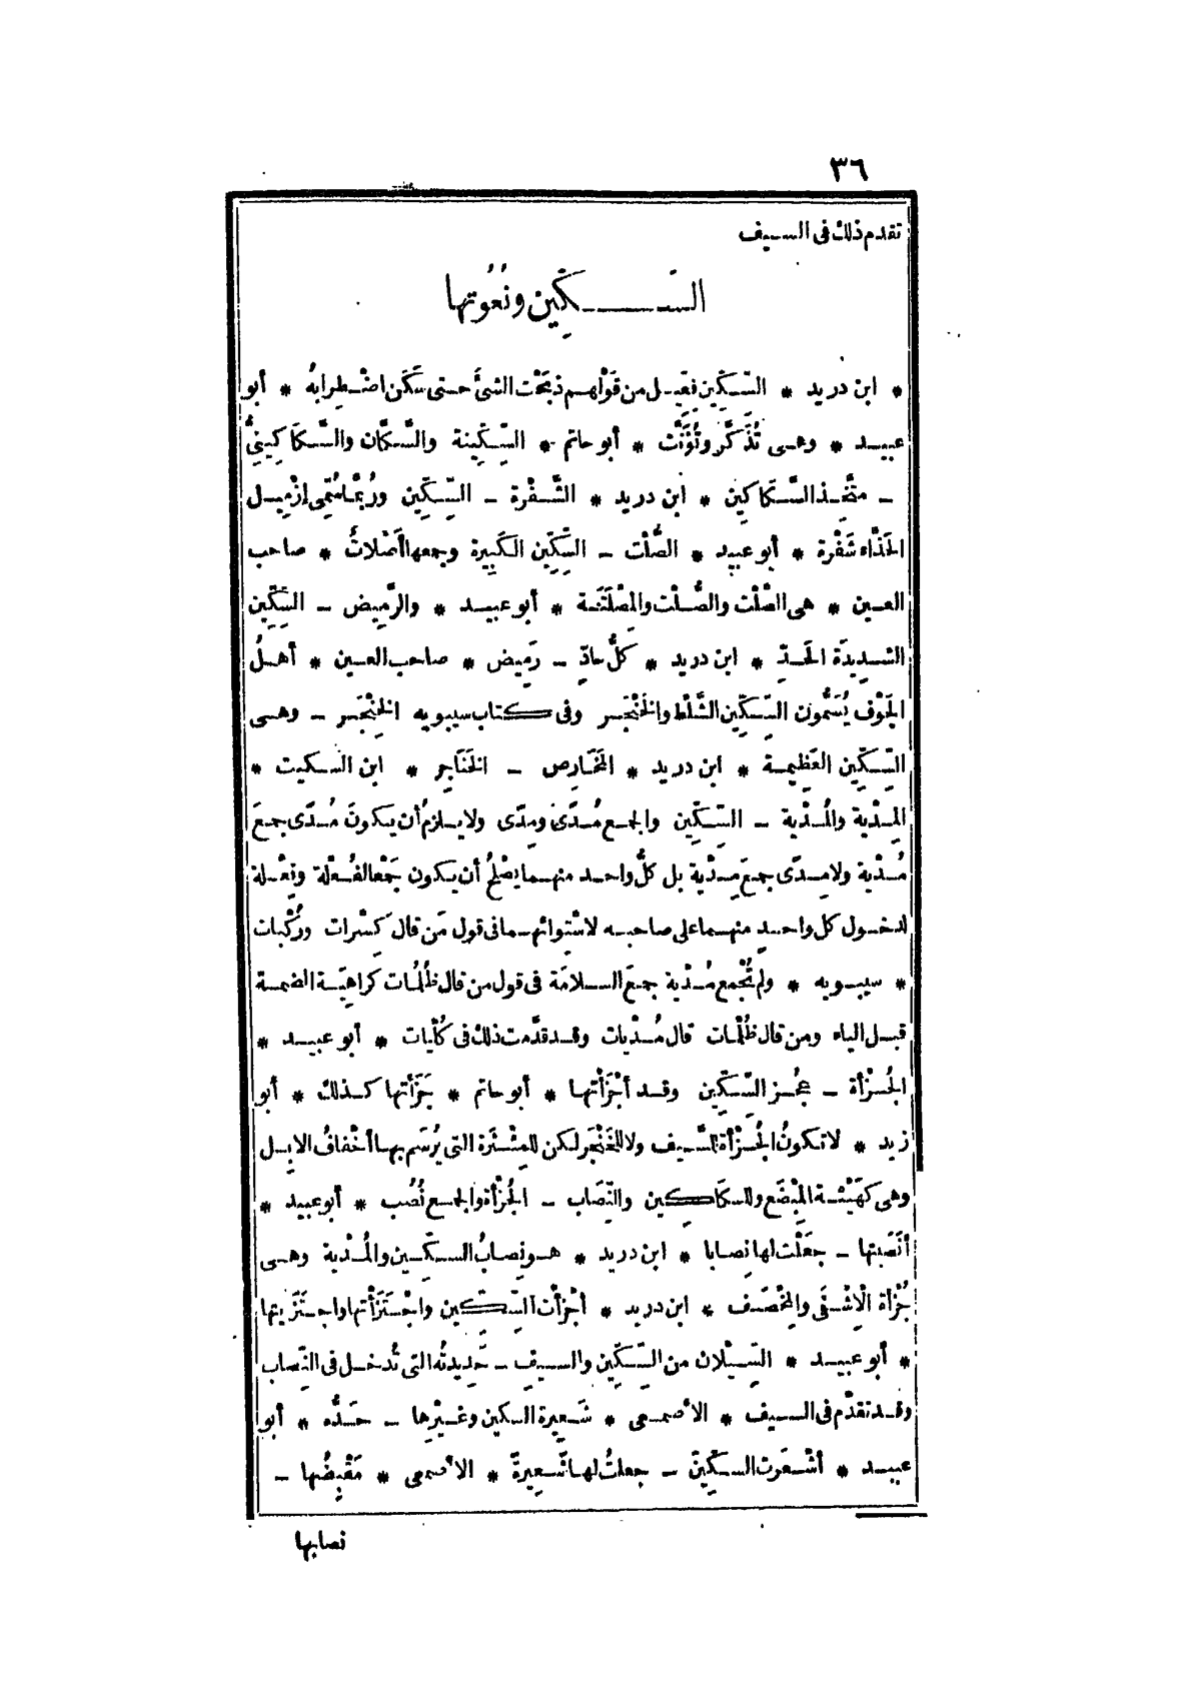 ٣٦
تقدم ذلك فى السيف
السِّكِّين ونُعُوتها
* ابن دريد * السِّكِّين فِعِّيل من قَوْلهم ذبَحْت الشئَ حتى سَكَن اضْطِرابهُ * أبو
عبيد * وهى تُذَكَّر وتُؤَنَّث * أبو حاتم * السِّكِّينة والسَّكَّان والسَّكَاكِينىُّ
ـ متَّخذ السَّكَاكِين * ابن دريد * الشَّفْرة ـ السِّكِّين ورُبَّما سُمِّى إزْمِيل
الحَذَّاء شَفْرة * أبو عبيد * الصُّلْت ـ السِّكِّين الكَبِيرة وجمعها أَصْلاتٌ * صاحب
العين * هى الصَّلْت والصُّلْت والمِصْلَتَة * أبو عبيد * والرَّمِيض ـ السِّكِّين
الشديدَة الحَدِّ * ابن دريد * كلُّ حادٍّ ـ رَمِيض * صاحب العين * أهلُ
الجَوْف يُسَمُّون السِّكِّين الشَّلْط والخَنْجَر وفى كتاب سيبويه الخِنْجَر ـ وهى
السِّكِّين العَظِيمة * ابن دريد * المَخَارِص ـ الخَنَاجِر * ابن السكيت *
المِدْية والمُدْية ـ السِّكِّين والجمع مُدًى ومِدًى ولا يلزمُ أن يكونَ مُدًى جمعَ
مُدْية ولا مِدًى جمعَ مِدْية بل كلُّ واحد منهما يصْلُح أن يكون جَمْعا لفُعْلة وفِعْلة
لدخول كل واحدٍ منهما على صاحبه لاسْتِوائهما فى قول مَن قال كِسْرات ورُكْبات
* سيبويه * ولم تُجْمع مُدْية جمعَ السلامَة فى قول من قال ظُلُمات كراهِيَة الضمة
قبل الياء ومن قال ظُلْمات قال مُدْيات وقد قدَّمت ذلك فى كُلْيات * أبو عبيد *
الجُزْأة ـ عَجُز السِّكِّين وقد أجْزَأْتها * أبو حاتم * جَزَأتها كذلك * أبو
زيد * لا تكونُ الجُزْأة للسَّيف ولا للخَنْجَر لكن للمِئْثَرة التى يُرْسَم بها أخْفافُ الابل
وهى كهَيْئة المِبْضَع وللسكاكين والنِّصَاب ـ الجُزْأة والجمع نُصُب * أبو عبيد *
أنْصَبْتها ـ جعَلْت لها نِصابا * ابن دريد * هو نِصابُ السكّين والمُدْية وهى
جُزْأة الإشْفَى والمِخْصَف * ابن دريد * أجْزأْت السِّكِّين واجْتَزَأْتها واجتَزَيتها
* أبو عبيد * السِّيلان من السِّكِّين والسيف ـ حَدِيدتُه التى تُدخل فى النِّصاب
وقد تقدّم فى السيف * الأصمعى * شَعِيرة السكين وغيْرِها ـ حَدُّه * أبو
عبيد * أشْعَرت السكِّينَ ـ جعلتُ لها شَعِيرةً * الأصمعى * مَقْبِضُها ـ
نصابها